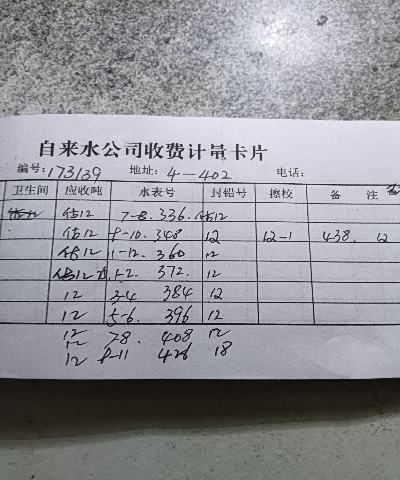 自来水公司收费计量卡片
编号: 173139 地址: 4-402 电话:
卫生间 应收吨 水表号 封铅号 擦校 备 注
估12 7-8. 336. 估12
估12 9-10. 348 12 12-1 438. 12
估12 11-12. 360 12
估12 1-2. 372. 12
12 3-4 384 12
12 5-6. 396 12
12 7-8. 408 12
12 9-11 426 18